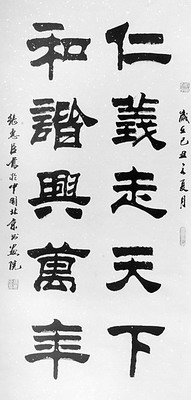 歲在己丑之夏月
仁義走天下
和諧興萬年
張惠臣書於中國北京書畫院